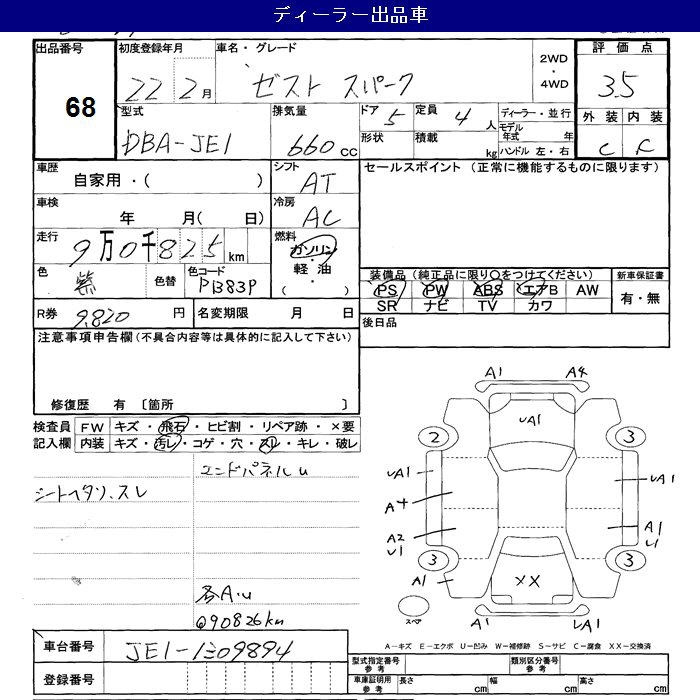 ディーラー出品車
出品番号 初度登録年月 車名・グレード 2WD・4WD 評価点
68 22 2月 ゼスト スパーク 3.5
型式 排気量 ドア 5 定員 4人 ディーラー・並行 外装 内装
DBA-JE1 660cc 形状 積載 kg モデル年式 年 C C
ハンドル 左・右
車歴 自家用・( ) シフト AT セールスポイント (正常に機能するものに限ります)
車検 年 月( 日) 冷房 AC
走行 9万0千825km 燃料 ガソリン・軽油・( )
色 紫 色替 色コード PB83P
装備品 (純正品に限り○をつけてください) 新車保証書
PS PW ABS エアB AW 有・無
SR ナビ TV カワ
R券 9,820円 名変期限 月 日 後日品
注意事項申告欄 (不具合内容等は具体的に記入して下さい)
修復歴 有 〔箇所 〕
検査員 FW キズ・飛石・ヒビ割・リペア跡・×要
記入欄 内装 キズ・汚レ・コゲ・穴・スレ・キレ・破レ
エンドパネルU
シートヘタリ、スレ
各A・U
Q90826km
A1 A4
UA1
2 3
UA1 UA1
A4
A2 U1 A1 U1
3 3
A1 XX
スペア A1 UA1
A−キズ E−エクボ U−凹み W−補修跡 S−サビ C−腐食 XX−交換済
車台番号 JE1-1309894
登録番号
型式指定番号 参考 類別区分番号 参考
車庫証明用 参考 長さ cm 幅 cm 高さ cm